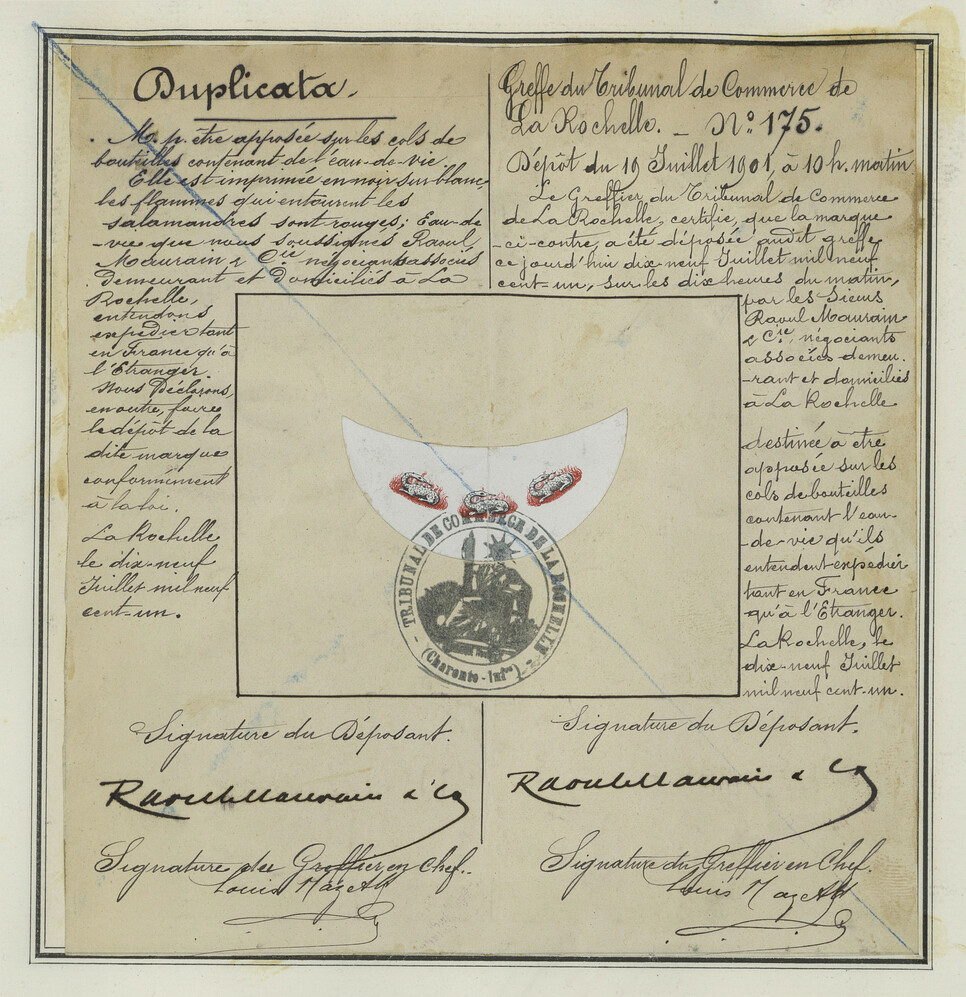 Duplicata.
M. p. être apposée sur les cols de
bouteilles contenant de l'eau-de-vie.
Elle est imprimée en noir sur blanc
les flammes qui entourent les
salamandres sont rouges; Eau-de-
-vie que nous soussignés Raoul
Maurain & Cie négociants associés
demeurant et domiciliés à La
Rochelle,
entendons
expédier tant
en France qu'à
l'Etranger.
Nous Déclarons,
en outre, faire
le dépôt de la
dite marque
conformément
à la loi.
La Rochelle
le dix-neuf
Juillet mil neuf
cent-un.
Greffe du Tribunal de Commerce de
La Rochelle. - No 175.
Dépôt du 19 Juillet 1901, à 10 h. matin
Le Greffier du Tribunal de Commerce
de La Rochelle, certifie, que la marque
-ci-contre, a été déposée audit greffe
ce jourd'hui dix-neuf Juillet mil neuf
cent-un, sur les dix heures du matin,
par les Sieurs
Raoul Maurain
& Cie, négociants
associés demeu-
-rant et domiciliés
à La Rochelle
destinée à être
apposée sur les
cols de bouteilles
contenant l'eau-
-de-vie qu'ils
entendent expédier
tant en France
qu'à l'Etranger.
La Rochelle, le
dix-neuf Juillet
mil neuf cent-un.
TRIBUNAL DE COMMERCE DE LA ROCHELLE
(Charente-Infre)
Signature du Déposant.
Raoul Maurain & Co
Signature du Greffier en Chef.
Louis
Signature du Déposant.
Raoul Maurain & Co
Signature du Greffier en Chef.
Louis